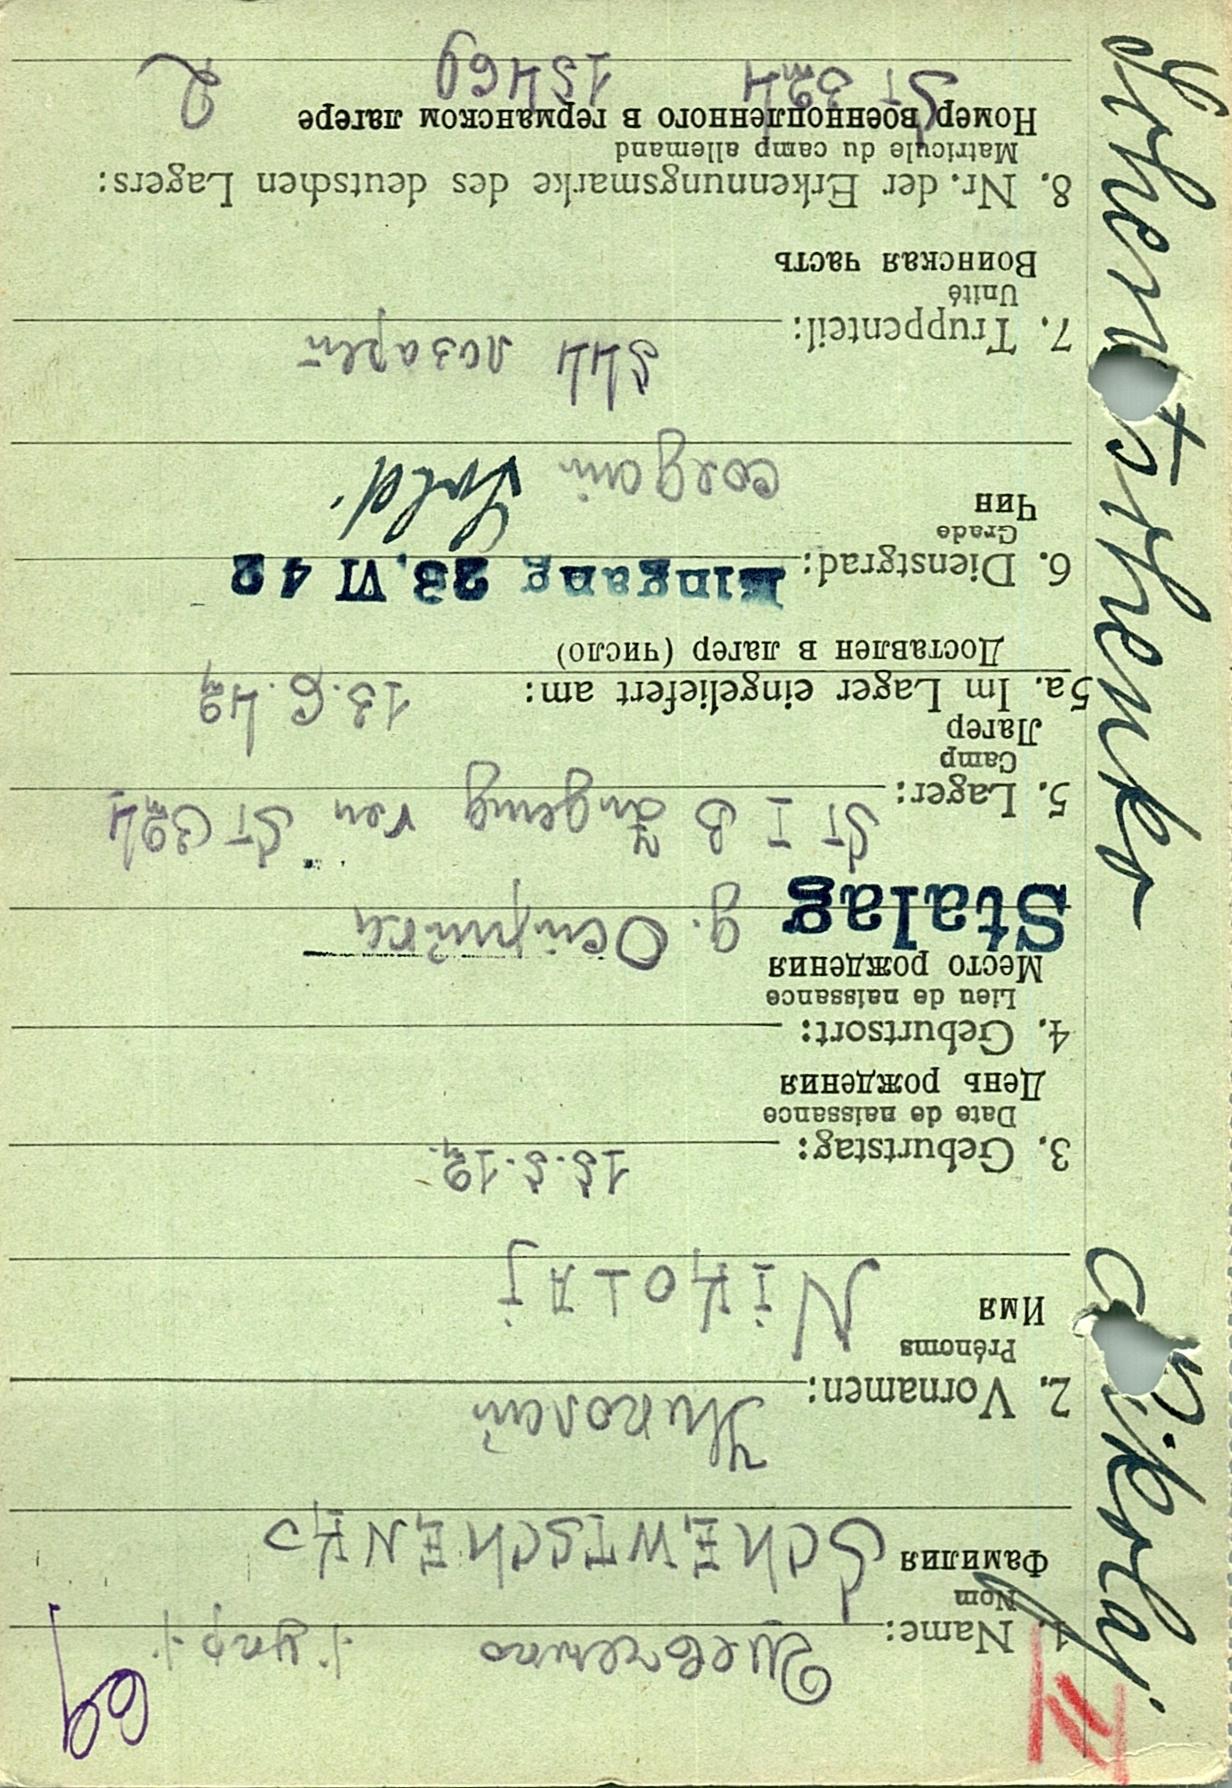 69
1. Name: Шевченко
Nom
Фамилия SCHEWTSCHENKO
2. Vornamen: Николай
Prénoms
Имя NIKOLAJ
3. Geburtstag: 15.5.12.
Date de naissance
День рождения
4. Geburtsort:
Lieu de naissance
Место рождения
Stalag
5. Lager: ST I B Zugang von ST 324
Camp
Лагер
5a. Im Lager eingeliefert am: 13.6.42
Доставлен в лагер (число)
6. Dienstgrad: Eingang 23. VI 42
Grade
Чин солдат Sold.
7. Truppenteil: 544
Unité
Воинская часть
8. Nr. der Erkennungsmarke des deutschen Lagers:
Matricule du camp allemand
Номер военнопленного в германском лагере
ST 324 15469
Nikolaj